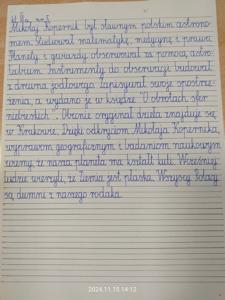 Mikołaj Kopernik był sławnym polskim astrono-
mem. Studiował matematykę, medycynę i prawo.
Planety i gwiazdy obserwował za pomocą astro-
labium. Instrumenty do obserwacji budował
z drewna jodłowego. Zapisywał swoje spostrze-
żenia, a wydano je w księdze "O obrotach sfer
niebieskich". Obecnie oryginał dzieła znajduje się
w Krakowie. Dzięki odkryciom Mikołaja Kopernika,
wyprawom geograficznym i badaniom naukowym
wiemy, że nasza planeta ma kształt kuli. Wcześniej
ludzie wierzyli, że Ziemia jest płaska. Wszyscy Polacy
są dumni z naszego rodaka.
2024.11.15 14:12